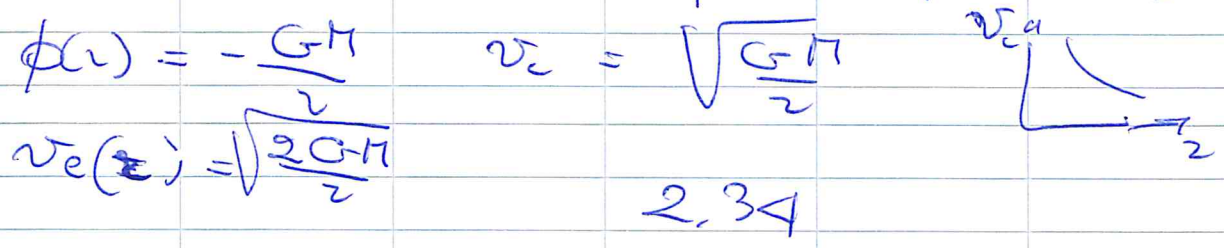 φ(r) = - GM/r v_c = √(GM/r) v_c r
v_e(r) = √(2GM/r)
2.34